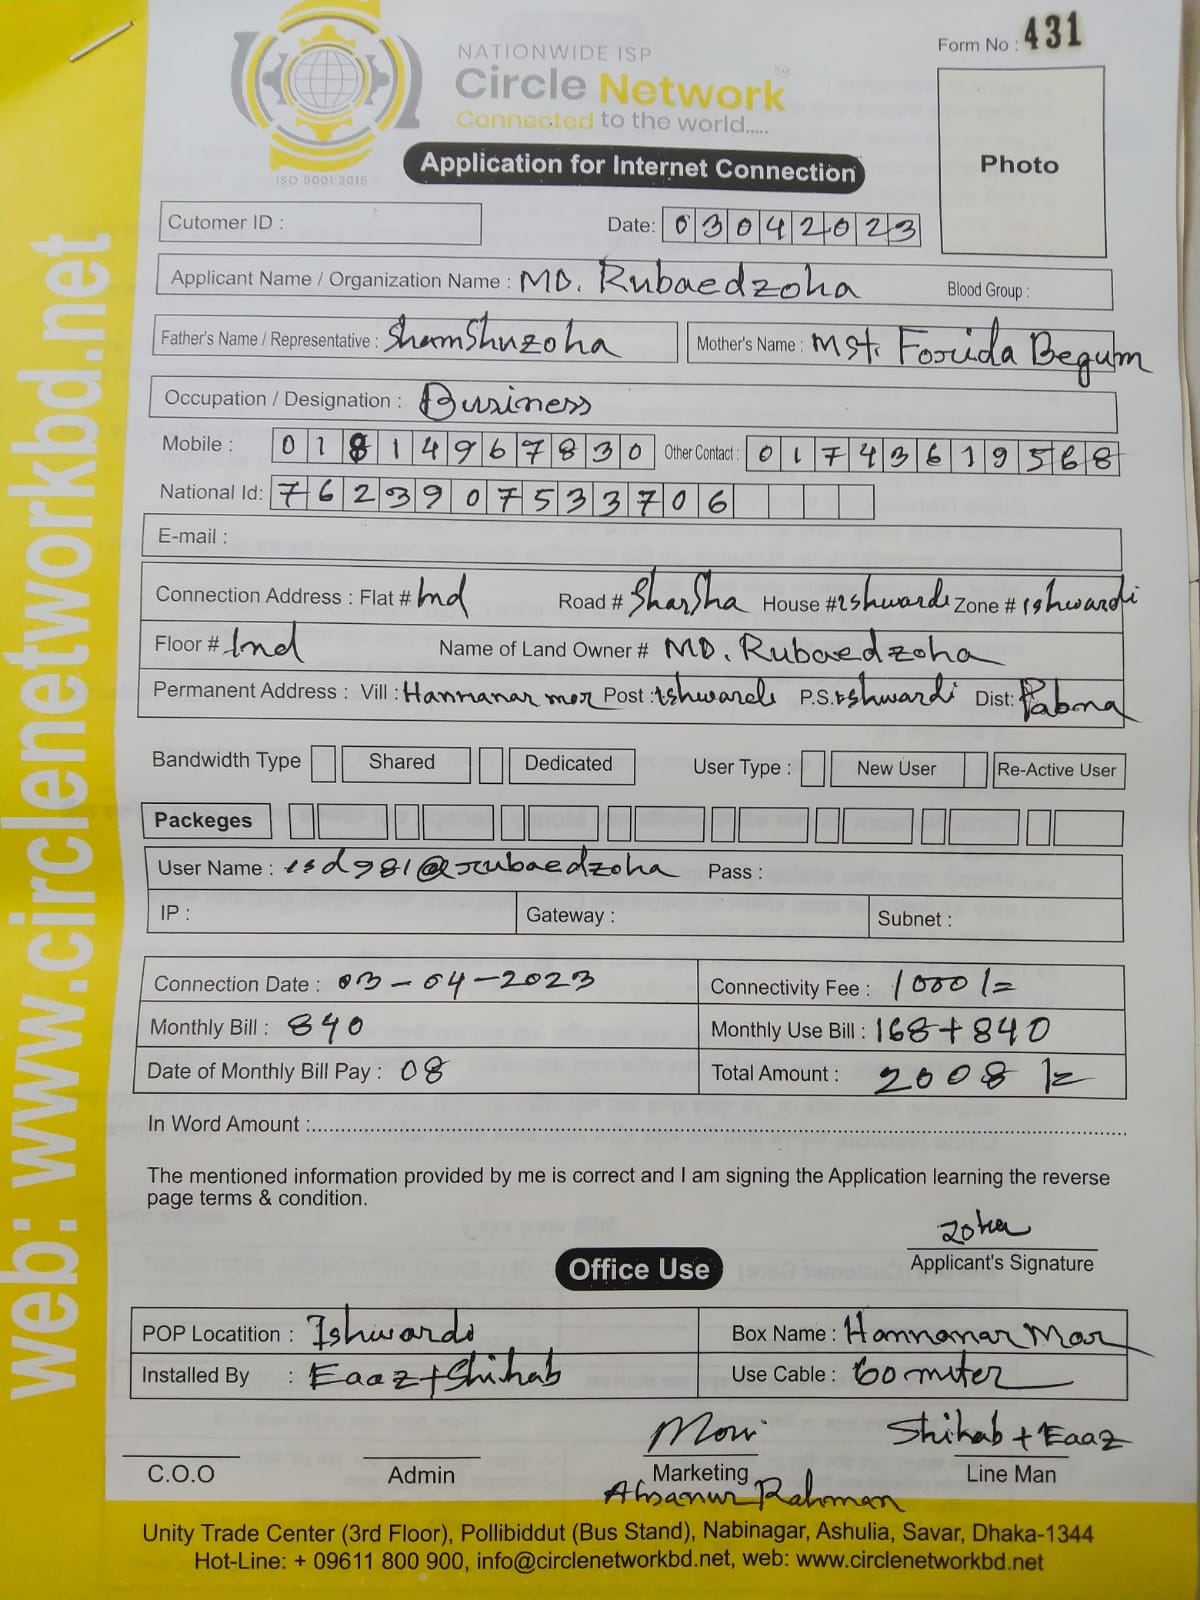 NATIONWIDE ISP
Circle Network
Connected to the world.....
ISO 9001:2015
Form No : 431
Application for Internet Connection
Photo
Cutomer ID :
Date: 03042023
Applicant Name / Organization Name : MD. Rubaedzoha Blood Group :
Father's Name / Representative : ShamShuzoha Mother's Name : Mst. Forida Begum
Occupation / Designation : Business
Mobile : 01814967830 Other Contact : 01743619568
National Id: 7623907533706
E-mail :
Connection Address : Flat # Ind Road # SharSha House # Ishwardi Zone # Ishwardi
Floor # Ind Name of Land Owner # MD. Rubaedzoha
Permanent Address : Vill : Hannanar mor Post : Ishwardi P.S. Ishwardi Dist: Pabna
Bandwidth Type Shared Dedicated User Type : New User Re-Active User
Packeges
User Name : isd981@rubaedzoha Pass :
IP : Gateway : Subnet :
Connection Date : 03-04-2023 Connectivity Fee : 1000/=
Monthly Bill : 840 Monthly Use Bill : 168+840
Date of Monthly Bill Pay : 08 Total Amount : 2008/=
In Word Amount :
The mentioned information provided by me is correct and I am signing the Application learning the reverse
page terms & condition.
zoha
Applicant's Signature
Office Use
POP Locatition : Ishwardi Box Name : Hannanar Mor
Installed By : Eaaz+Shihab Use Cable : 60 miter
Shihab + Eaaz
C.O.O Admin Marketing Line Man
Ahsanur Rahman
Unity Trade Center (3rd Floor), Pollibiddut (Bus Stand), Nabinagar, Ashulia, Savar, Dhaka-1344
Hot-Line: + 09611 800 900, info@circlenetworkbd.net, web: www.circlenetworkbd.net
web: www.circlenetworkbd.net